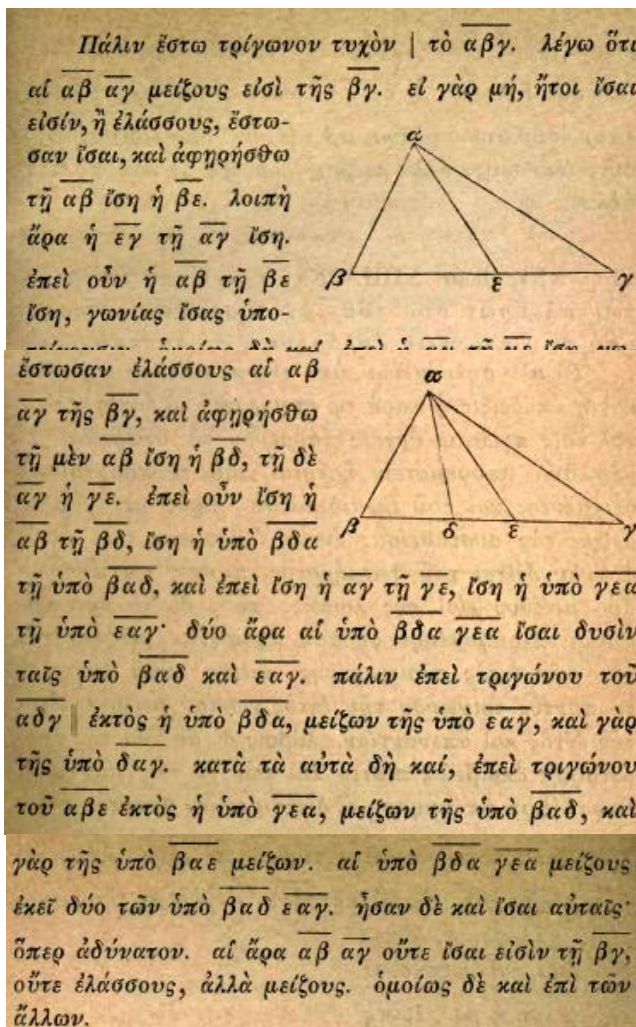 Πάλιν ἔστω τρίγωνον τυχὸν | τὸ α̅β̅γ̅. λέγω ὅτι
αἱ α̅β̅ α̅γ̅ μείζους εἰσὶ τῆς β̅γ̅. εἰ γὰρ μή, ἤτοι ἴσαι
εἰσίν, ἢ ἐλάσσους, ἔστω-
σαν ἴσαι, καὶ ἀφῃρήσθω
τῇ α̅β̅ ἴση ἡ β̅ε̅. λοιπὴ
ἄρα ἡ ε̅γ̅ τῇ α̅γ̅ ἴση.
ἐπεὶ οὖν ἡ α̅β̅ τῇ β̅ε̅
ἴση, γωνίας ἴσας ὑπο-
α
β ε γ
ἔστωσαν ἐλάσσους αἱ αβ
α̅γ̅ τῆς β̅γ̅, καὶ ἀφῃρήσθω
τῇ μὲν α̅β̅ ἴση ἡ β̅δ̅, τῇ δὲ
α̅γ̅ ἡ γ̅ε̅. ἐπεὶ οὖν ἴση ἡ
α̅β̅ τῇ β̅δ̅, ἴση ἡ ὑπὸ β̅δ̅α̅
α
β δ ε γ
τῇ ὑπὸ β̅α̅δ̅, καὶ ἐπεὶ ἴση ἡ α̅γ̅ τῇ γ̅ε̅, ἴση ἡ ὑπὸ γ̅ε̅α̅
τῇ ὑπὸ ε̅α̅γ̅· δύο ἄρα αἱ ὑπὸ β̅δ̅α̅ γ̅ε̅α̅ ἴσαι δυσὶν
ταῖς ὑπὸ β̅α̅δ̅ καὶ ε̅α̅γ̅. πάλιν ἐπεὶ τριγώνου τοῦ
α̅δ̅γ̅ ‖ ἐκτὸς ἡ ὑπὸ β̅δ̅α̅, μείζων τῆς ὑπὸ ε̅α̅γ̅, καὶ γὰρ
τῆς ὑπὸ δ̅α̅γ̅. κατὰ τὰ αὐτὰ δὴ καί, ἐπεὶ τριγώνου
τοῦ α̅β̅ε̅ ἐκτὸς ἡ ὑπὸ γ̅ε̅α̅, μείζων τῆς ὑπὸ β̅α̅δ̅, καὶ
γὰρ τῆς ὑπὸ β̅α̅ε̅ μείζων. αἱ ὑπὸ β̅δ̅α̅ γ̅ε̅α̅ μείζους
ἐκεῖ δύο τῶν ὑπὸ β̅α̅δ̅ ε̅α̅γ̅. ἦσαν δὲ καὶ ἴσαι αὐταῖς·
ὅπερ ἀδύνατον. αἱ ἄρα α̅β̅ α̅γ̅ οὔτε ἴσαι εἰσὶν τῇ β̅γ̅,
οὔτε ἐλάσσους, ἀλλὰ μείζους. ὁμοίως δὲ καὶ ἐπὶ τῶν
ἄλλων.